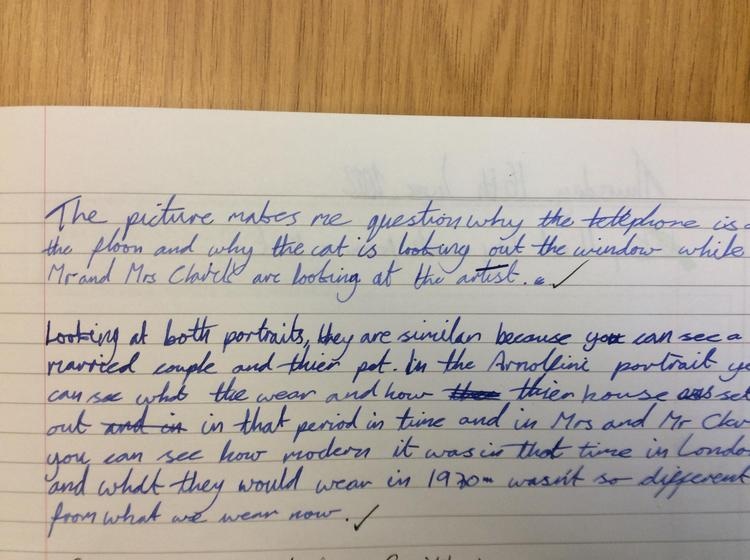 The picture makes me question why the telephone is
the floor and why the cat is looking out the window while
Mr and Mrs Clarck are looking at the artist.
Looking at both portraits, they are similar because you can see a
married couple and thier pet. In the Arnolfini portrait
can see what the wear and how thier house is set
out in that period in time and in Mrs and Mr
you can see how modern it was in that time in
and what they would wear in 1970 wasn't so different
from what we wear now.